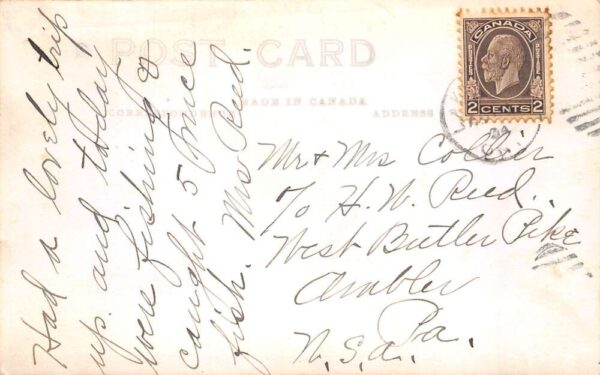 POST CARD
MADE IN CANADA
CORRESPONDENCE
ADDRESS
CANADA
2 CENTS 2
Had a lovely trip
up. and today
were fishing &
caught 5 nice
fish. Mrs Reed.
Mr & Mrs Collier
℅ H. W. Reed.
West Butler Pike
Ambler
Pa.
U.S.A.